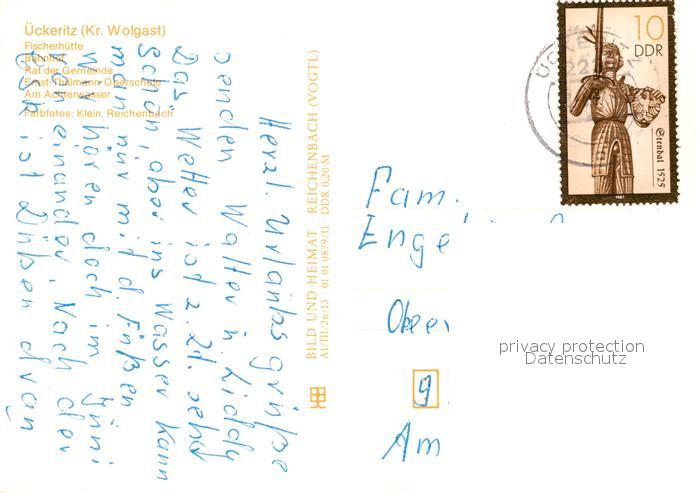 Ückeritz (Kr. Wolgast)
Fischerhütte
Bahnhof
Rat der Gemeinde
Ernst-Thälmann-Oberschule
Am Achterwasser
Farbfotos: Klein, Reichenbach
Herzl. Urlaubsgrüße
senden Walter u. Liddy
Das Wetter ist z. Zt. sehr
schön, aber ins Wasser kann
man nur mit d. Füßen
Wir hören doch im Juni
von einander. Nach der
ist Dußen dran
BILD UND HEIMAT REICHENBACH (VOGTL)
A1/III/26/13 01 01 0879/11 DDR 0,20 M
10
DDR
Stendal 1525
1987
Fam.
Enge
Ober
9
Am
privacy protection
Datenschutz